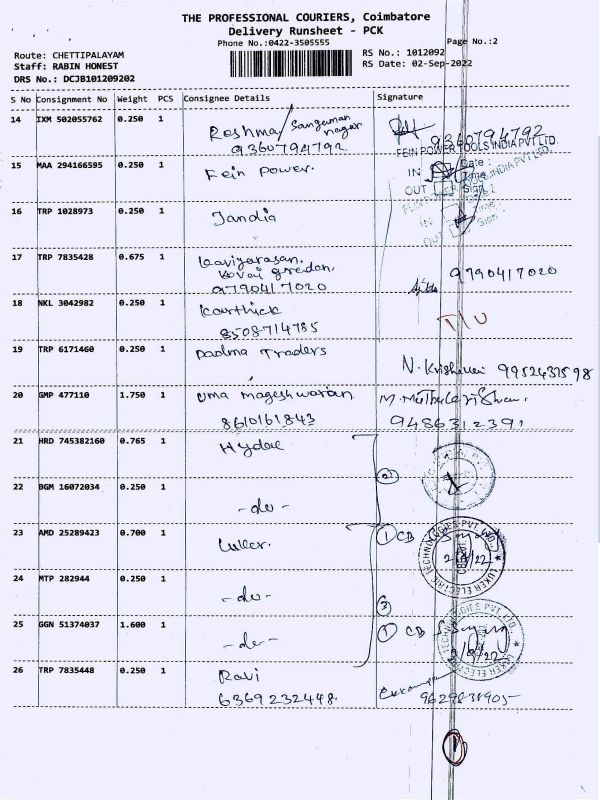 THE PROFESSIONAL COURIERS, Coimbatore
Delivery Runsheet - PCK
Phone No.:0422-3505555
Page No.:2
Route: CHETTIPALAYAM
Staff: RABIN HONEST
DRS No.: DCJB101209202
RS No.: 1012092
RS Date: 02-Sep-2022
S No Consignment No Weight PCS Consignee Details Signature
14 IXM 502055762 0.250 1 Reshma/ Sanguman nagar
9360794792 9360794792
FEIN POWER TOOLS INDIA PVT LTD.
15 MAA 294166595 0.250 1 Fein Power.
IN Date :
Time
OUT Sign :
16 TRP 1028973 0.250 1 Jandia
IN
OUT Sign :
17 TRP 7835428 0.675 1 Kaviyarasan.
Kovai greeden.
9790417020 9790417020
18 NKL 3042982 0.250 1 Karthick
8508714785 T/U
19 TRP 6171460 0.250 1 Padma Traders
N. Krishaveni 9952437598
20 GMP 477110 1.750 1 Uma mageshwaran
8610161843 9486312391
21 HRD 745382160 0.765 1 Hydac
22 BGM 16072034 0.250 1 - do -
2
23 AMD 25289423 0.700 1 Luker. 1 CB
LUKER ELECTRIC TECHNOLOGIES PVT LTD.
2/9/22
24 MTP 282944 0.250 1 - do -
3
25 GGN 51374037 1.600 1 - do - 1 CB
2/9/22
26 TRP 7835448 0.250 1 Ravi
6369232448. 9629838905